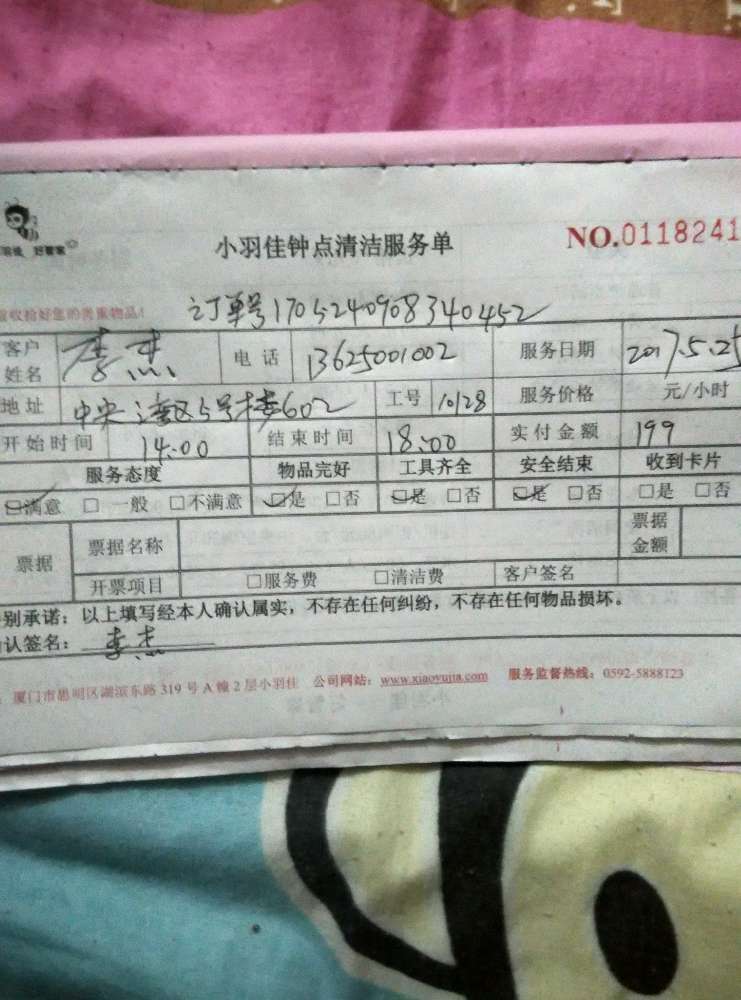 好管家
小羽佳钟点清洁服务单
NO.0118241
收拾好您的贵重物品!
订单号1705240908340452
客户姓名 李杰 电话 13625001002 服务日期 2017.5.25
地址 中央湾区5号楼602 工号 10128 服务价格 元/小时
开始时间 14:00 结束时间 18:00 实付金额 199
服务态度 物品完好 工具齐全 安全结束 收到卡片
☑满意 □一般 □不满意 ☑是 □否 ☑是 □否 ☑是 □否 □是 □否
票据 票据名称 票据金额
开票项目 □服务费 □清洁费 客户签名
别承诺：以上填写经本人确认属实，不存在任何纠纷，不存在任何物品损坏。
认签名：李杰
厦门市思明区湖滨东路319号A幢2层小羽佳 公司网站：www.xiaoyujia.com 服务监督热线：0592-5888123